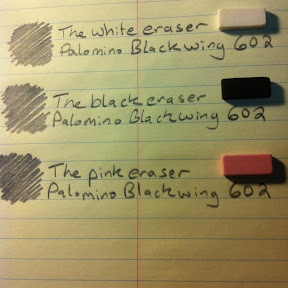 The white eraser
Palomino Blackwing 602
The black eraser
Palomino Blackwing 602
The pink eraser
Palomino Blackwing 602